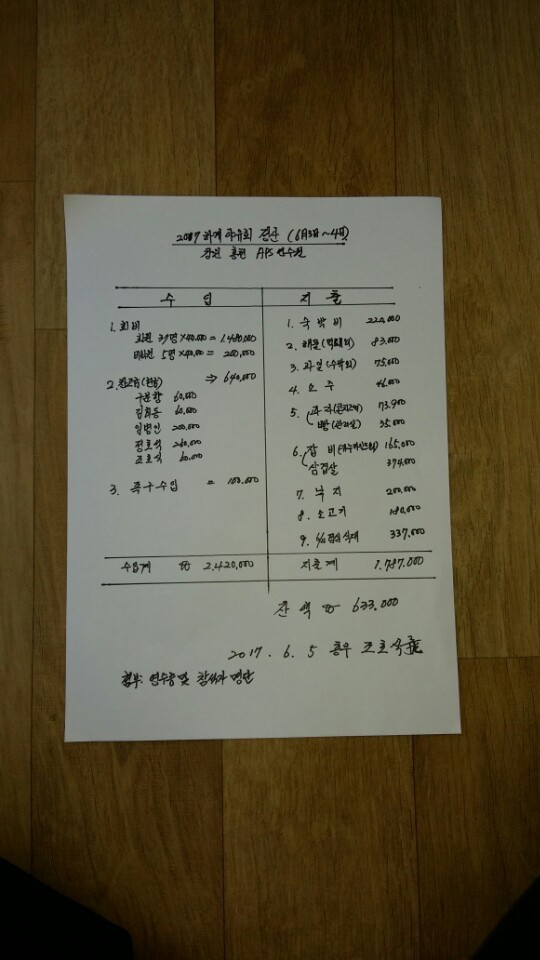 2017 하계 야유회 결산 (6月3日~4日)
강원 홍천 APS 연수원
수 입 지 출
1. 회비
회원 37명 ×40,000 = 1,480,000
비회원 5명 ×40,000 = 200,000
2. 찬조금(현금) ⇒ 640,000
구본창 60,000
김희동 60,000
임병인 200,000
정호석 260,000
조호식 60,000
3. 족구수입 = 100,000
수입계 ₩ 2,420,000
1. 숙박비 220,000
2. 해물 83,000
3. 과일(수박외) 75,000
4. 소주 46,000
5. 과자 73,900
35,000
6. 잡비 165,000
삼겹살 374,000
7. 낙지 200,000
8. 소고기 180,000
9. 점심식대 337,000
지출계 1,787,000
잔액 ₩ 633,000
2017. 6. 5 총무 조호식
첨부: 영수증 및 참석자 명단